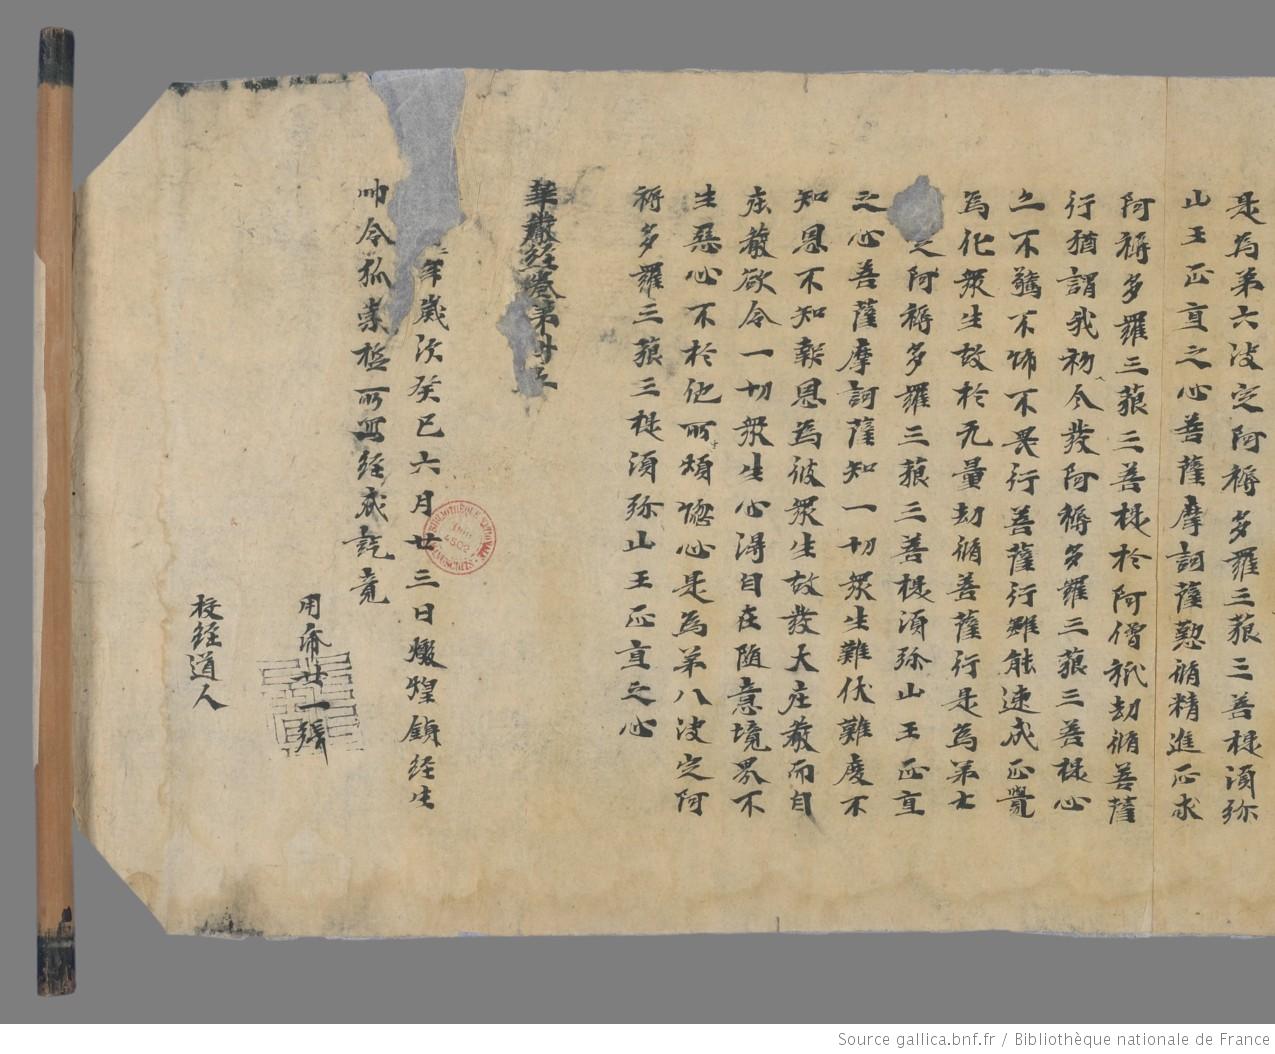 是為第六決定阿耨多羅三藐三菩提須弥
山王正直之心菩薩摩訶薩懃脩精進正求
阿耨多羅三藐三菩提於阿僧祇劫脩菩薩
行猶謂我初今發阿耨多羅三藐三菩提心
亦不驚不怖不畏行菩薩行雖能速成正覺
為化衆生故於无量劫脩菩薩行是為第七
之阿耨多羅三藐三菩提須弥山王正直
之心菩薩摩訶薩知一切衆生難伏難度不
知恩不知報恩為彼衆生故發大庄嚴而自
庄嚴欲令一切衆生心淂自在随意境界不
生惡心不於他所煩惱心是為第八決定阿
耨多羅三藐三提須弥山王正直之心
華嚴經卷第
年歲次癸巳六月廿三日燉煌鎮經生
帥令狐崇悊所寫經成訖竟
用帋廿一張
校經道人
BIBLIOTHÈQUE NATIONALE MANUSCRITS
Source gallica.bnf.fr / Bibliothèque nationale de France